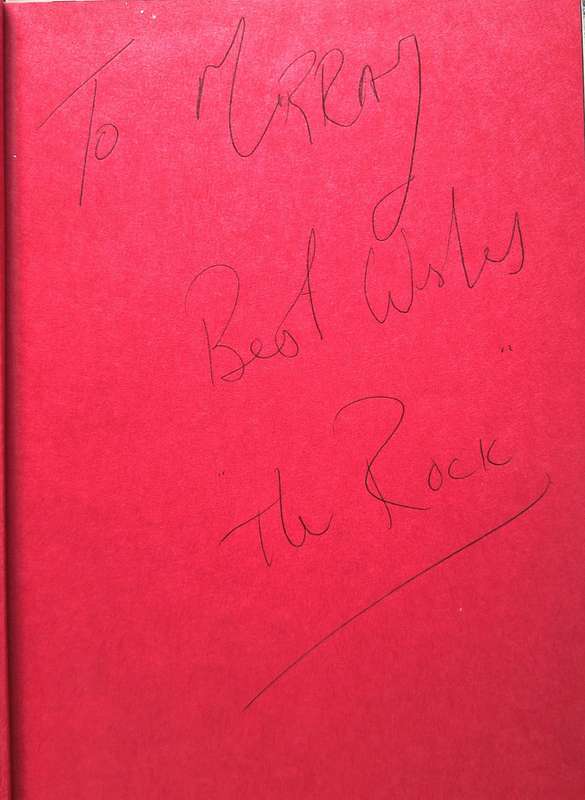 To MURRAY
Best Wishes
"The Rock"